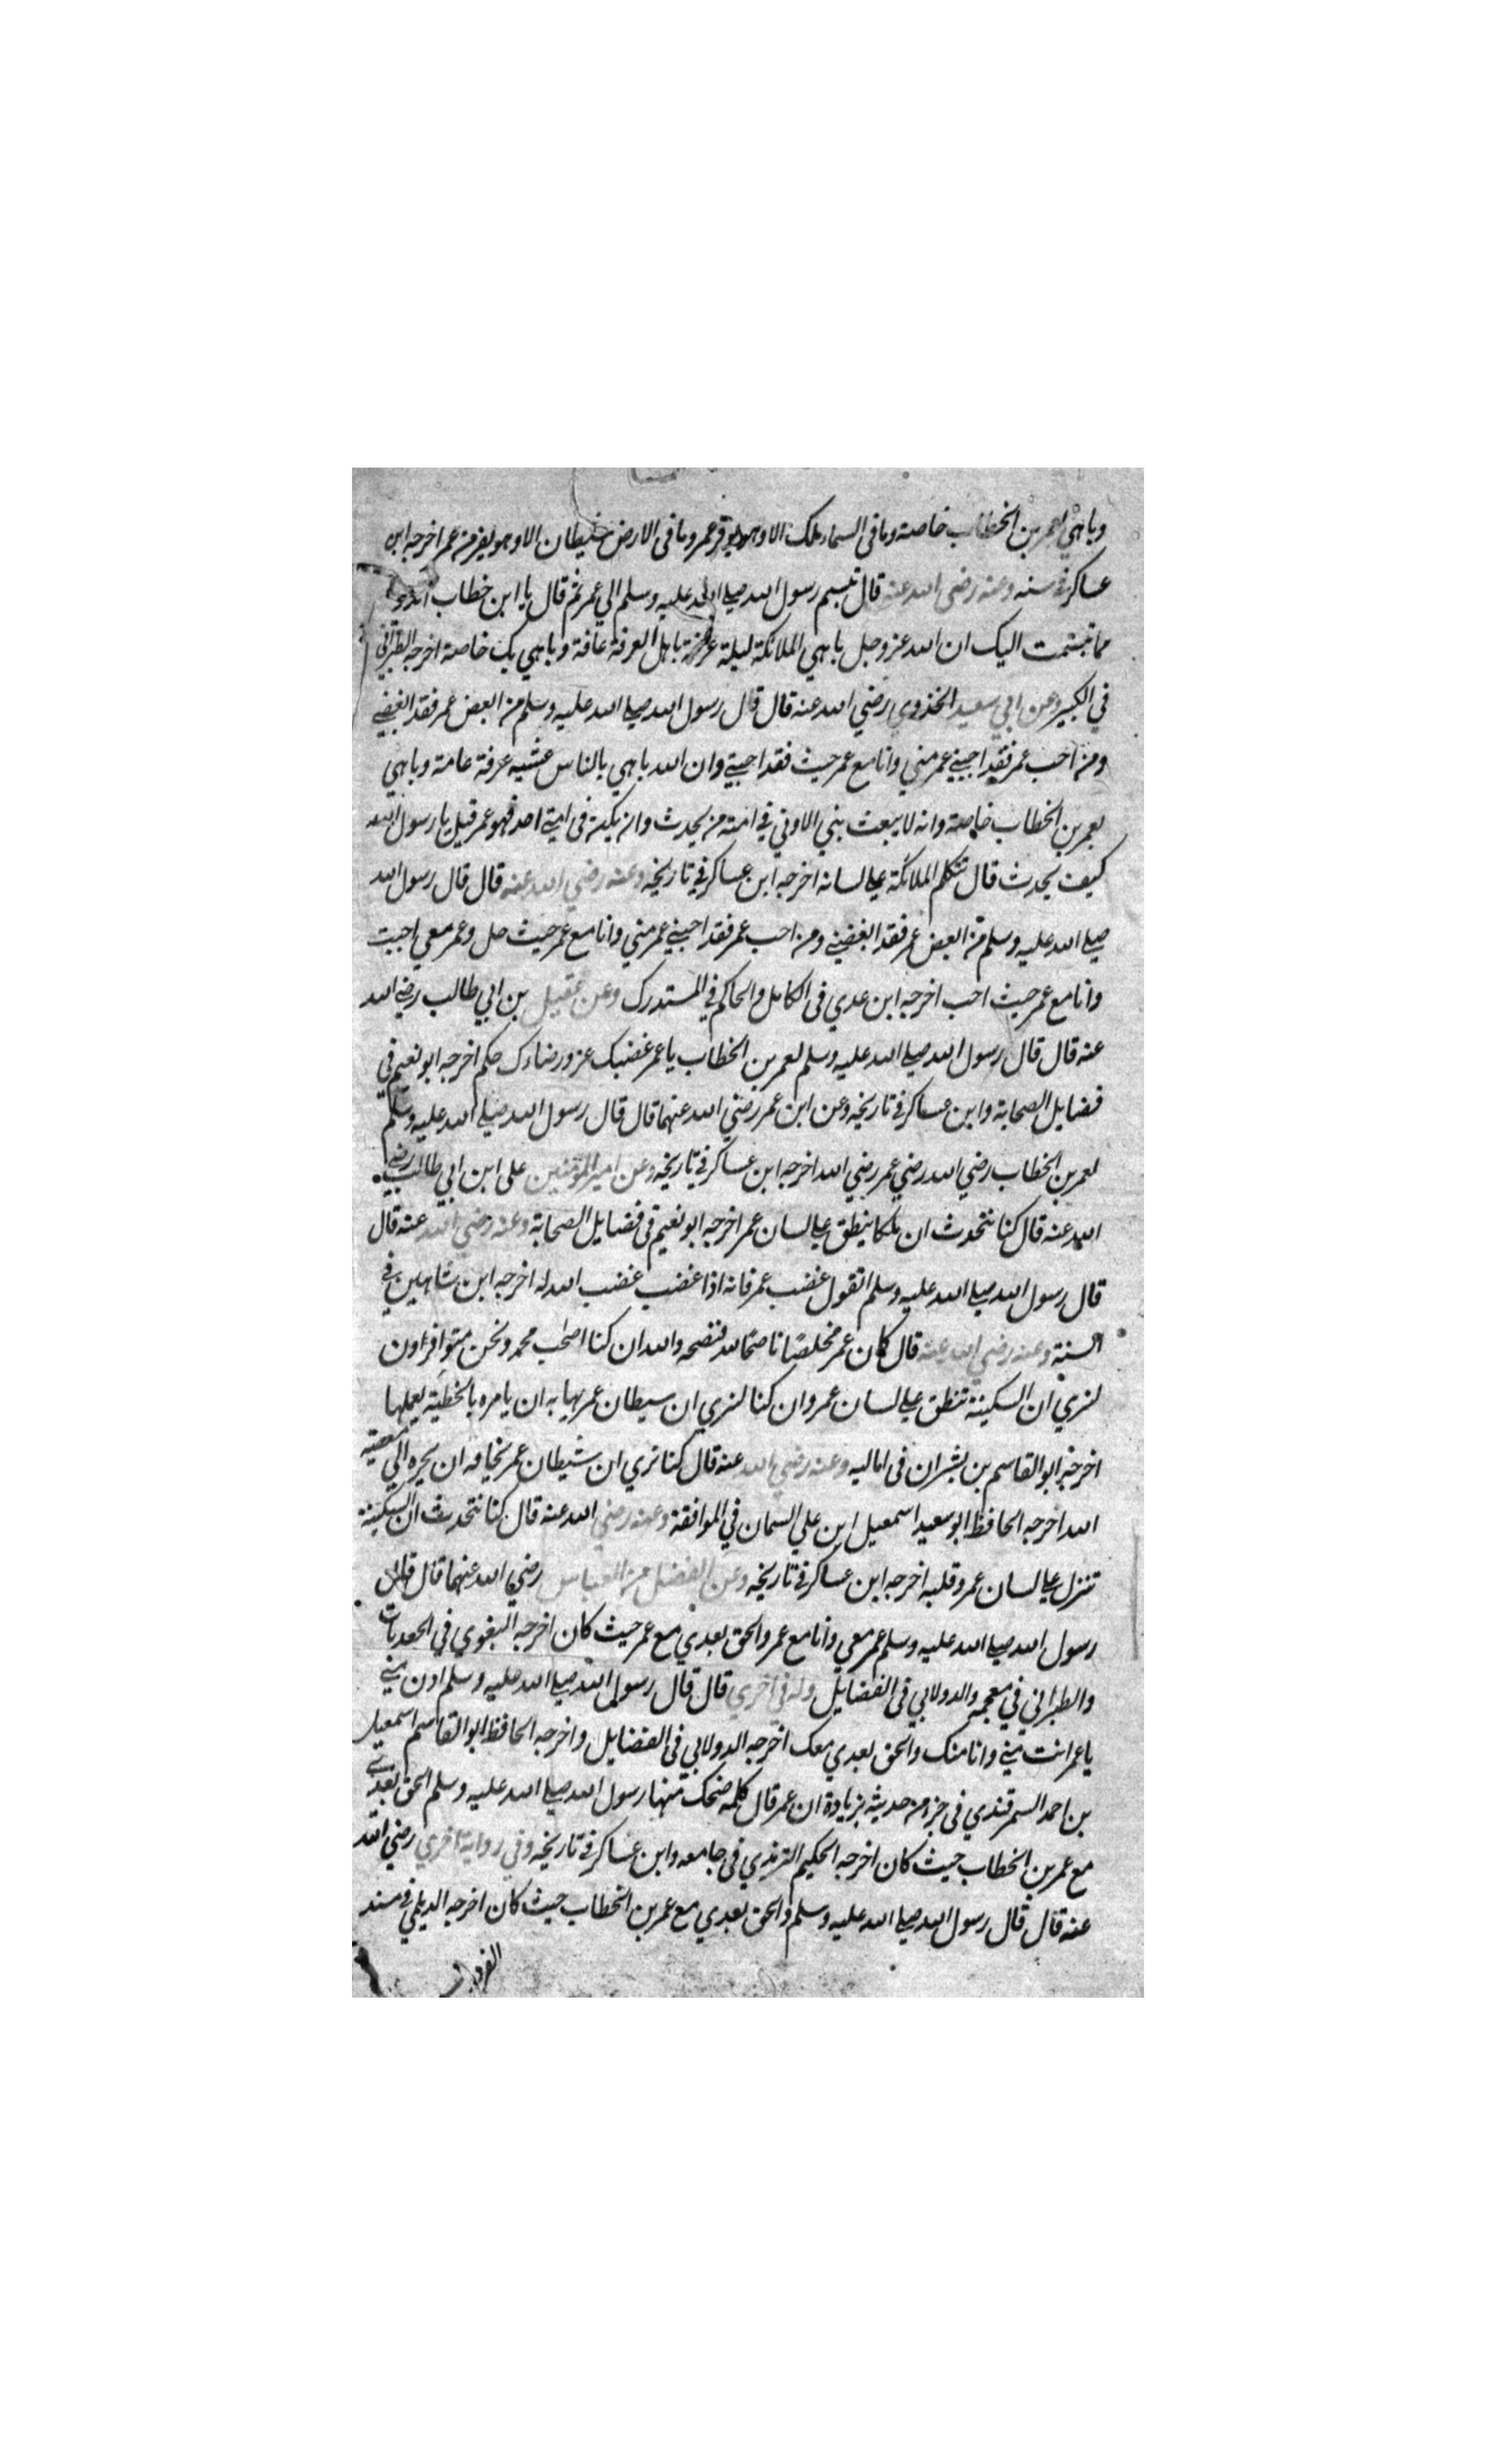 وباهي بعمر بن الخطاب خاصة وما في السماء ملك الا وهو يوقر عمر وما في الارض شيطان الا وهو يفر من عمر اخرجه ابن
عساكر في سننه وعنه رضي الله عنه قال تبسم رسول الله صلى الله عليه وسلم الي عمر ثم قال يا ابن خطاب اتدري
مما تبسمت اليك ان الله عز وجل باهي الملائكة ليلة عرفة باهل العرفة عامة وباهي بك خاصة اخرجه الطبراني
في الكبير وعن ابي سعيد الخذوي رضي الله عنه قال قال رسول الله صلى الله عليه وسلم من ابغض عمر فقد ابغضني
ومن احب عمر فقد احبني عمر مني وانا مع عمر حيث فقد احبني وان الله باهي بالناس عشيه عرفة عامة وباهي
بعمر بن الخطاب خاصة وانه لا يبعث بني الا وني في امته من يحدث وان يكن في امتي احد فهو عمر قيل يا رسول الله
كيف يحدث قال تتكلم الملائكة على لسانه اخرجه ابن عساكر في تاريخه وعنه رضي الله عنه قال قال رسول الله
صلى الله عليه وسلم من ابغض عمر فقد ابغضني ومن احب عمر فقد احبني عمر مني وانا مع عمر حيث حل وعمر معي احببت
وانا مع عمر حيث احب اخرجه ابن عدي في الكامل والحاكم في المستدرك وعن عقيل بن ابي طالب رضي الله
عنه قال قال رسول الله صلى الله عليه وسلم لعمر بن الخطاب يا عمر غضبك عز ورضاءك حكم اخرجه ابو نعيم في
فضايل الصحابة وابن عساكر في تاريخه وعن ابن عمر رضي الله عنهما قال قال رسول الله صلى الله عليه وسلم
لعمر بن الخطاب رضي الله رضي عمر رضي الله اخرجه ابن عساكر في تاريخه وعن امير المؤمنين على ابن ابي طالب رضي
الله عنه قال كنا نتحدث ان ملكا ينطق على لسان عمر اخرجه ابو نعيم في فضايل الصحابة وعنه رضي الله عنه قال
قال رسول الله صلى الله عليه وسلم اتقول غضب عمر فانه اذا غضب غضب الله له اخرجه ابن شاهين في
السنة وعنه رضي الله عنه قال كان عمر مخلصًا ناصحًا لله فنصحه والله ان كنا اصحٰب محمد ونحن متوافراون
لنري ان السكينة تنطق على لسان عمر وان كنا لنري ان سيطان عمر يهابه ان يامره بالخطية يعملها
اخرجه ابو القاسم بن بشران في اماليه وعنه رضي الله عنه قال كنا نري ان شيطان عمر يخافه ان يجره الي معصية
الله اخرجه الحافظ ابو سعيد اسمعيل ابن علي السمان في الموافقة وعنه رضي الله عنه قال كنا نتحدث ان السكينة
تنزل على لسان عمر وقلبه اخرجه ابن عساكر في تاريخه وعن الفضل من العباس رضي الله عنهما قال قال
رسول الله صلى الله عليه وسلم عمر معي وانا مع عمر والحق بعدي مع عمر حيث كان اخرجه البغوي في الجعديات
والطبراني في معجمه والدولابي في الفضايل وله في اخري قال قال رسول الله صلى الله عليه وسلم ادن مني
يا عمر انت مني وانا منك والحق بعدي معك اخرجه الدولابي في الفضايل واخرجه الحافظ ابو القاسم اسمعيل
بن احمد السمرقندي في جزء من حديثه بزيادة ان عمر قال كلمه ضحك منها رسول الله صلى الله عليه وسلم الحق بعدي
مع عمر بن الخطاب حيث كان اخرجه الحكيم الترمذي في جامعه وابن عساكر في تاريخه وفي رواية اخري رضي الله
عنه قال قال رسول الله صلى الله عليه وسلم والحق بعدي مع عمر بن الخطاب حيث كان اخرجه الديلمي في مسند
الفردوس